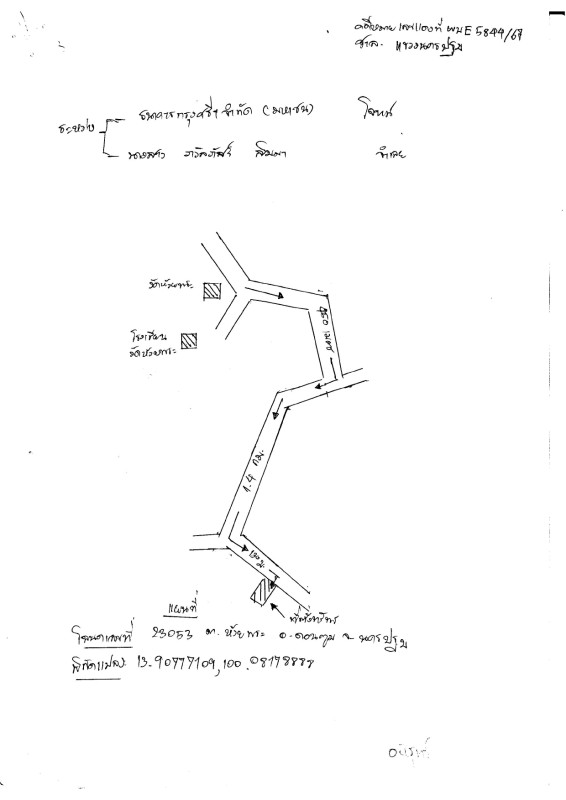 คดีหมายเลขแดงที่ ผบE 5844/67
ศาล แขวงนครปฐม
ระหว่าง
ธนาคารกรุงศรีฯ จำกัด (มหาชน) โจทก์
นางสาว จำเลย
วัดห้วยพระ
โรงเรียน
วัดห้วยพระ
450 เมตร
1.4 กม.
ที่ตั้งทรัพย์
แผนที่
โฉนดเลขที่ 23053 ต.ห้วยพระ อ.ดอนตูม จ.นครปฐม
พิกัดแปลง 13.90777109,100.08178888